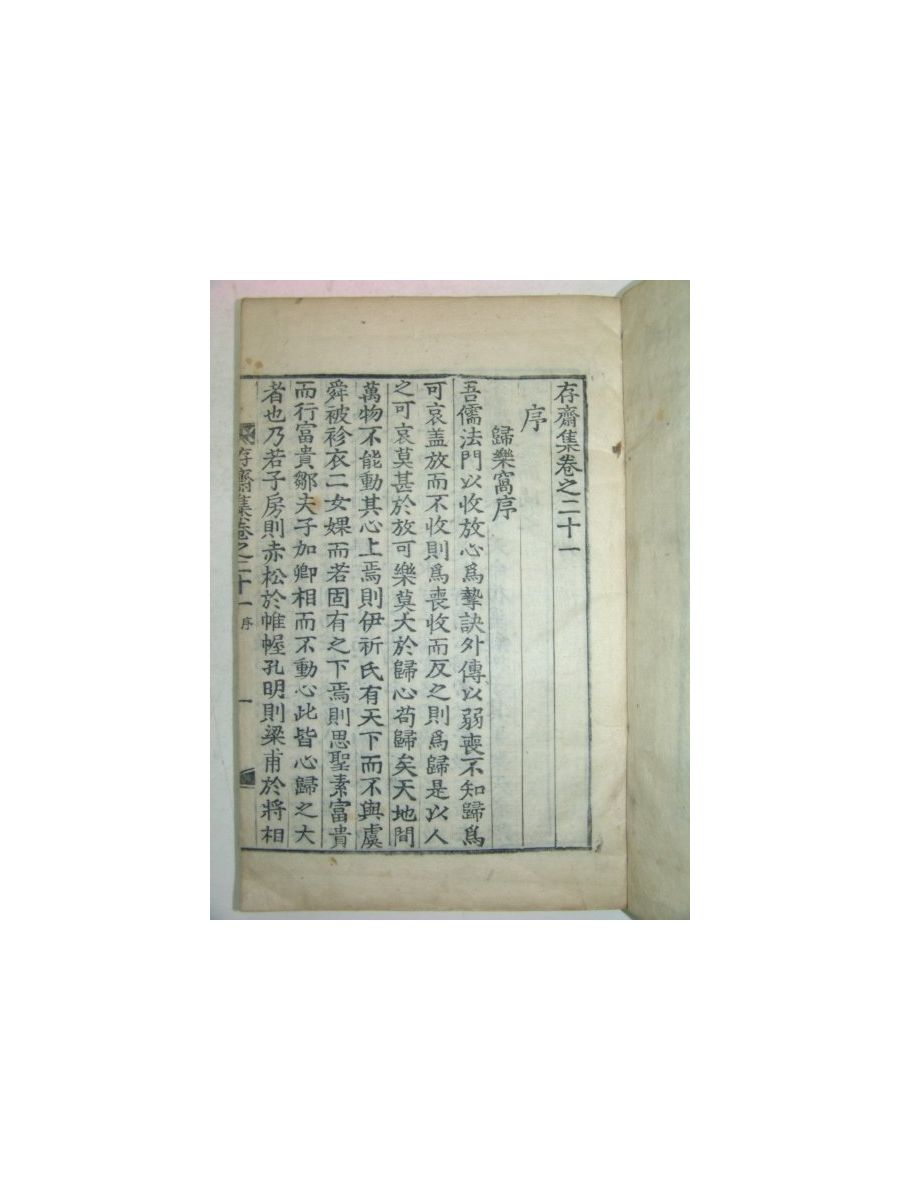 存齋集卷之二十一
序
歸樂窩序
吾儒法門以收放心爲摯訣外傳以弱喪不知歸爲
可哀盖放而不收則爲喪收而反之則爲歸是以人
之可哀莫甚於放可樂莫大於歸心苟歸矣天地間
萬物不能動其心上焉則伊祈氏有天下而不與虞
舜被袗衣二女婐而若固有之下焉則思聖素富貴
而行富貴鄒夫子加卿相而不動心此皆心歸之大
者也乃若子房則赤松於帷幄孔明則梁甫於將相
存齋集卷之二十一 序 一